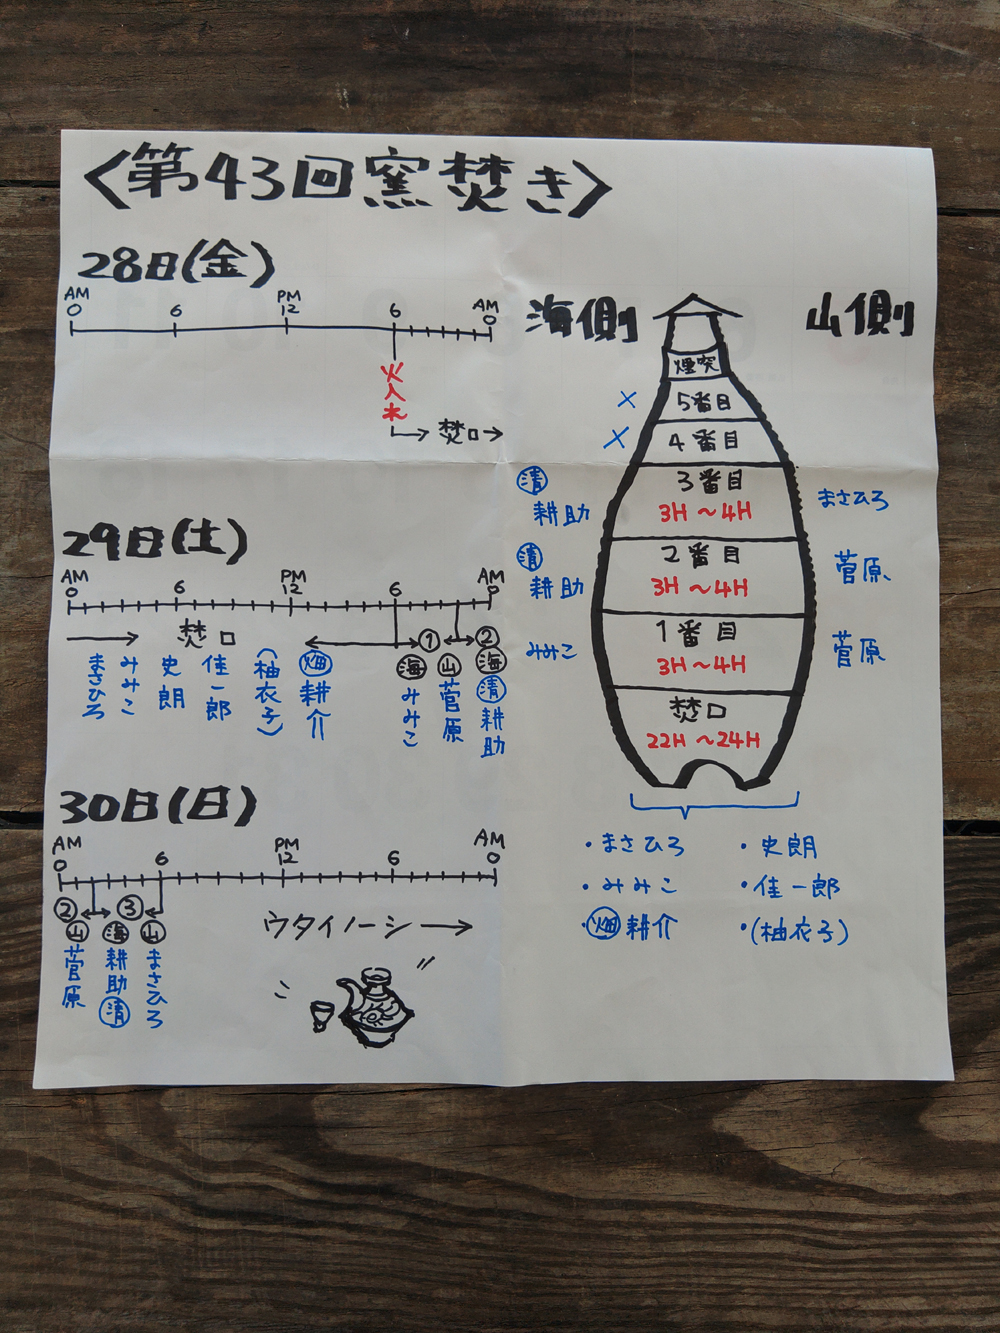 〈第43回窯焚き〉
28日(金)
AM 0 6 PM 12 6 AM 0
火入れ
焚口
29日(土)
AM 0 6 PM 12 6 AM 0
焚口 ① ②
まさひろ
みみこ
史朗
佳一郎
(柚衣子)
畑 耕介
海 みみこ
山 菅原
海 清 耕助
30日(日)
AM 0 6 PM 12 6 AM 0
② ③
山 菅原
海 耕助 清
山 まさひろ
ウタイノーシ
海側
山側
煙突
× 5番目
× 4番目
3番目
清 耕助 3H〜4H まさひろ
2番目
清 耕助 3H〜4H 菅原
1番目
みみこ 3H〜4H 菅原
焚口
22H〜24H
・まさひろ ・史朗
・みみこ ・佳一郎
・畑 耕介 ・(柚衣子)